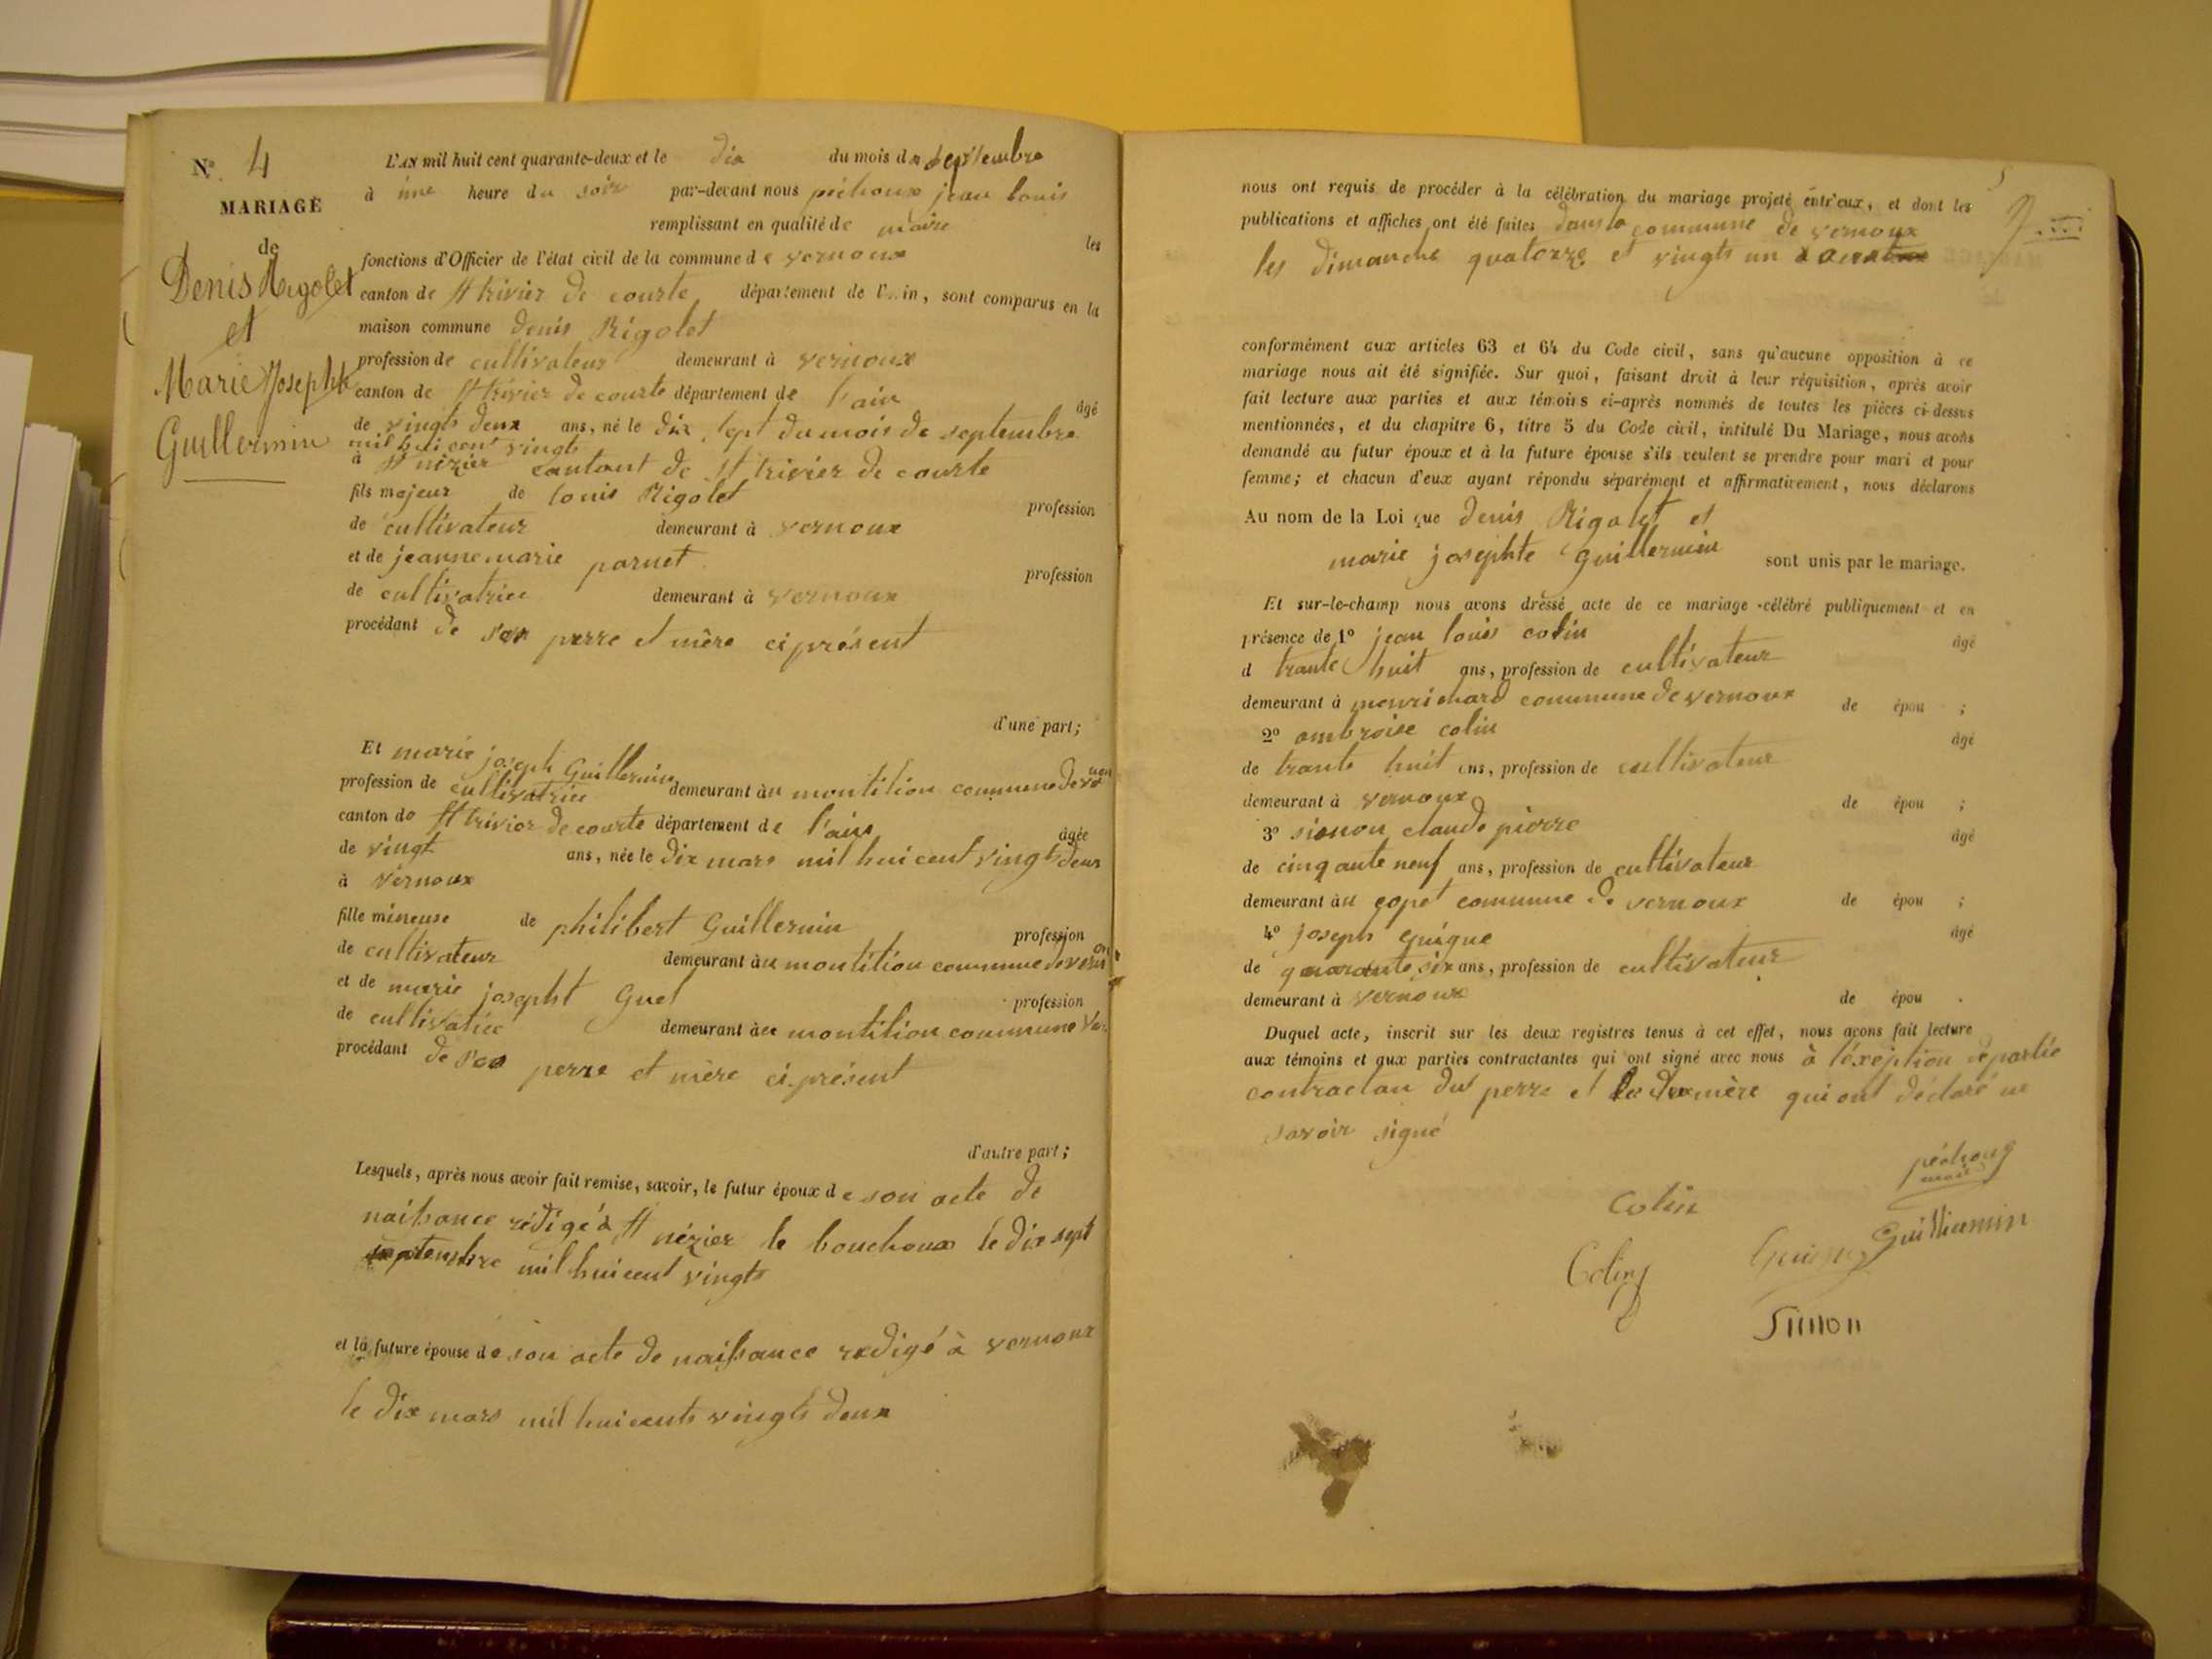 N° 4
MARIAGE
de
Denis Rigolet
et
Marie Josephte
Guillermin
L'AN mil huit cent quarante-deux et le dix du mois de septembre
à une heure du soir par-devant nous péchoux jean louis
remplissant en qualité de maire les
fonctions d'Officier de l'état civil de la commune de vernoux
canton de St trivier de courte département de l'Ain, sont comparus en la
maison commune denis Rigolet
profession de cultivateur demeurant à vernoux
canton de St trivier de courte département de l'ain âgé
de vingts deux ans, né le dix sept du mois de septembre
mil huit cent vingts
à St nizier cantont de St trivier de courte
fils majeur de louis Rigolet profession
de cultivateur demeurant à vernoux
et de jeanne marie parnet profession
de cultivatrice demeurant à vernoux
procédant de son perre et mère ci présent
d'une part;
Et marie joseph Guillermin
profession de cultivatrice demeurant àu montition commune de vernoux
canton de St trivier de courte département de l'ain âgée
de vingt ans, née le dix mars mil huicent vingt deux
à vernoux
fille mineuse de philibert Guillermin profession
de cultivateur demeurant àu montition commune de vernoux
et de marie josepht Guet profession
de cultivatiée demeurant àu montition commune ver
procédant de son perre et mère ci présent
d'autre part;
Lesquels, après nous avoir fait remise, savoir, le futur époux de son acte de
naissance rédigé à St nézier le bouchoux le dix sept
septembre mil huicent vingts
et la future épouse de son acte de naissance redigé à vernoux
le dix mars mil huicents vingts deux
5
nous ont requis de procéder à la célébration du mariage projeté entr'eux, et dont les
publications et affiches ont été faites dans la commune de vernoux
les dimanche quatorze et vingts un
conformément aux articles 63 et 64 du Code civil, sans qu'aucune opposition à ce
mariage nous ait été signifiée. Sur quoi, faisant droit à leur réquisition, après avoir
fait lecture aux parties et aux témoins ci-après nommés de toutes les pièces ci-dessus
mentionnées, et du chapitre 6, titre 5 du Code civil, intitulé Du Mariage, nous avons
demandé au futur époux et à la future épouse s'ils veulent se prendre pour mari et pour
femme; et chacun d'eux ayant répondu séparément et affirmativement, nous déclarons
Au nom de la Loi que denis Rigolet et
marie josephte Guillermin sont unis par le mariage.
Et sur-le-champ nous avons dressé acte de ce mariage célébré publiquement et en
présence de 1° jean louis colin âgé
d trante huit ans, profession de cultivateur
demeurant à monrichard commune de vernoux de épou ;
2° ambroise colin âgé
de trante huit ans, profession de cultivateur
demeurant à vernoux de épou ;
3° simon claude pierre âgé
de cinqante neuf ans, profession de cultivateur
demeurant àu copet commune de vernoux de épou ;
4° joseph guigue âgé
de quarante six ans, profession de cultivateur
demeurant à vernoux de épou .
Duquel acte, inscrit sur les deux registres tenus à cet effet, nous avons fait lecture
aux témoins et aux parties contractantes qui ont signé avec nous à l'éxéption de partie
contractan du perre et mère qui ont déclaré ne
savoir signé
péchoux
maire
Colin
Guilliermin
Colin
Simon